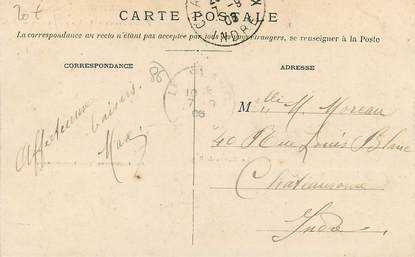 20 €
CARTE POSTALE
La correspondance au recto n'étant pas acceptée par tous les pays étrangers, se renseigner à la Poste
CORRESPONDANCE
ADRESSE
Affectueux
baisers.
Max
10
7
08
08
INDRE
Mlle M. Moreau
40 Rue Louis Blanc
Châteauroux
Indre